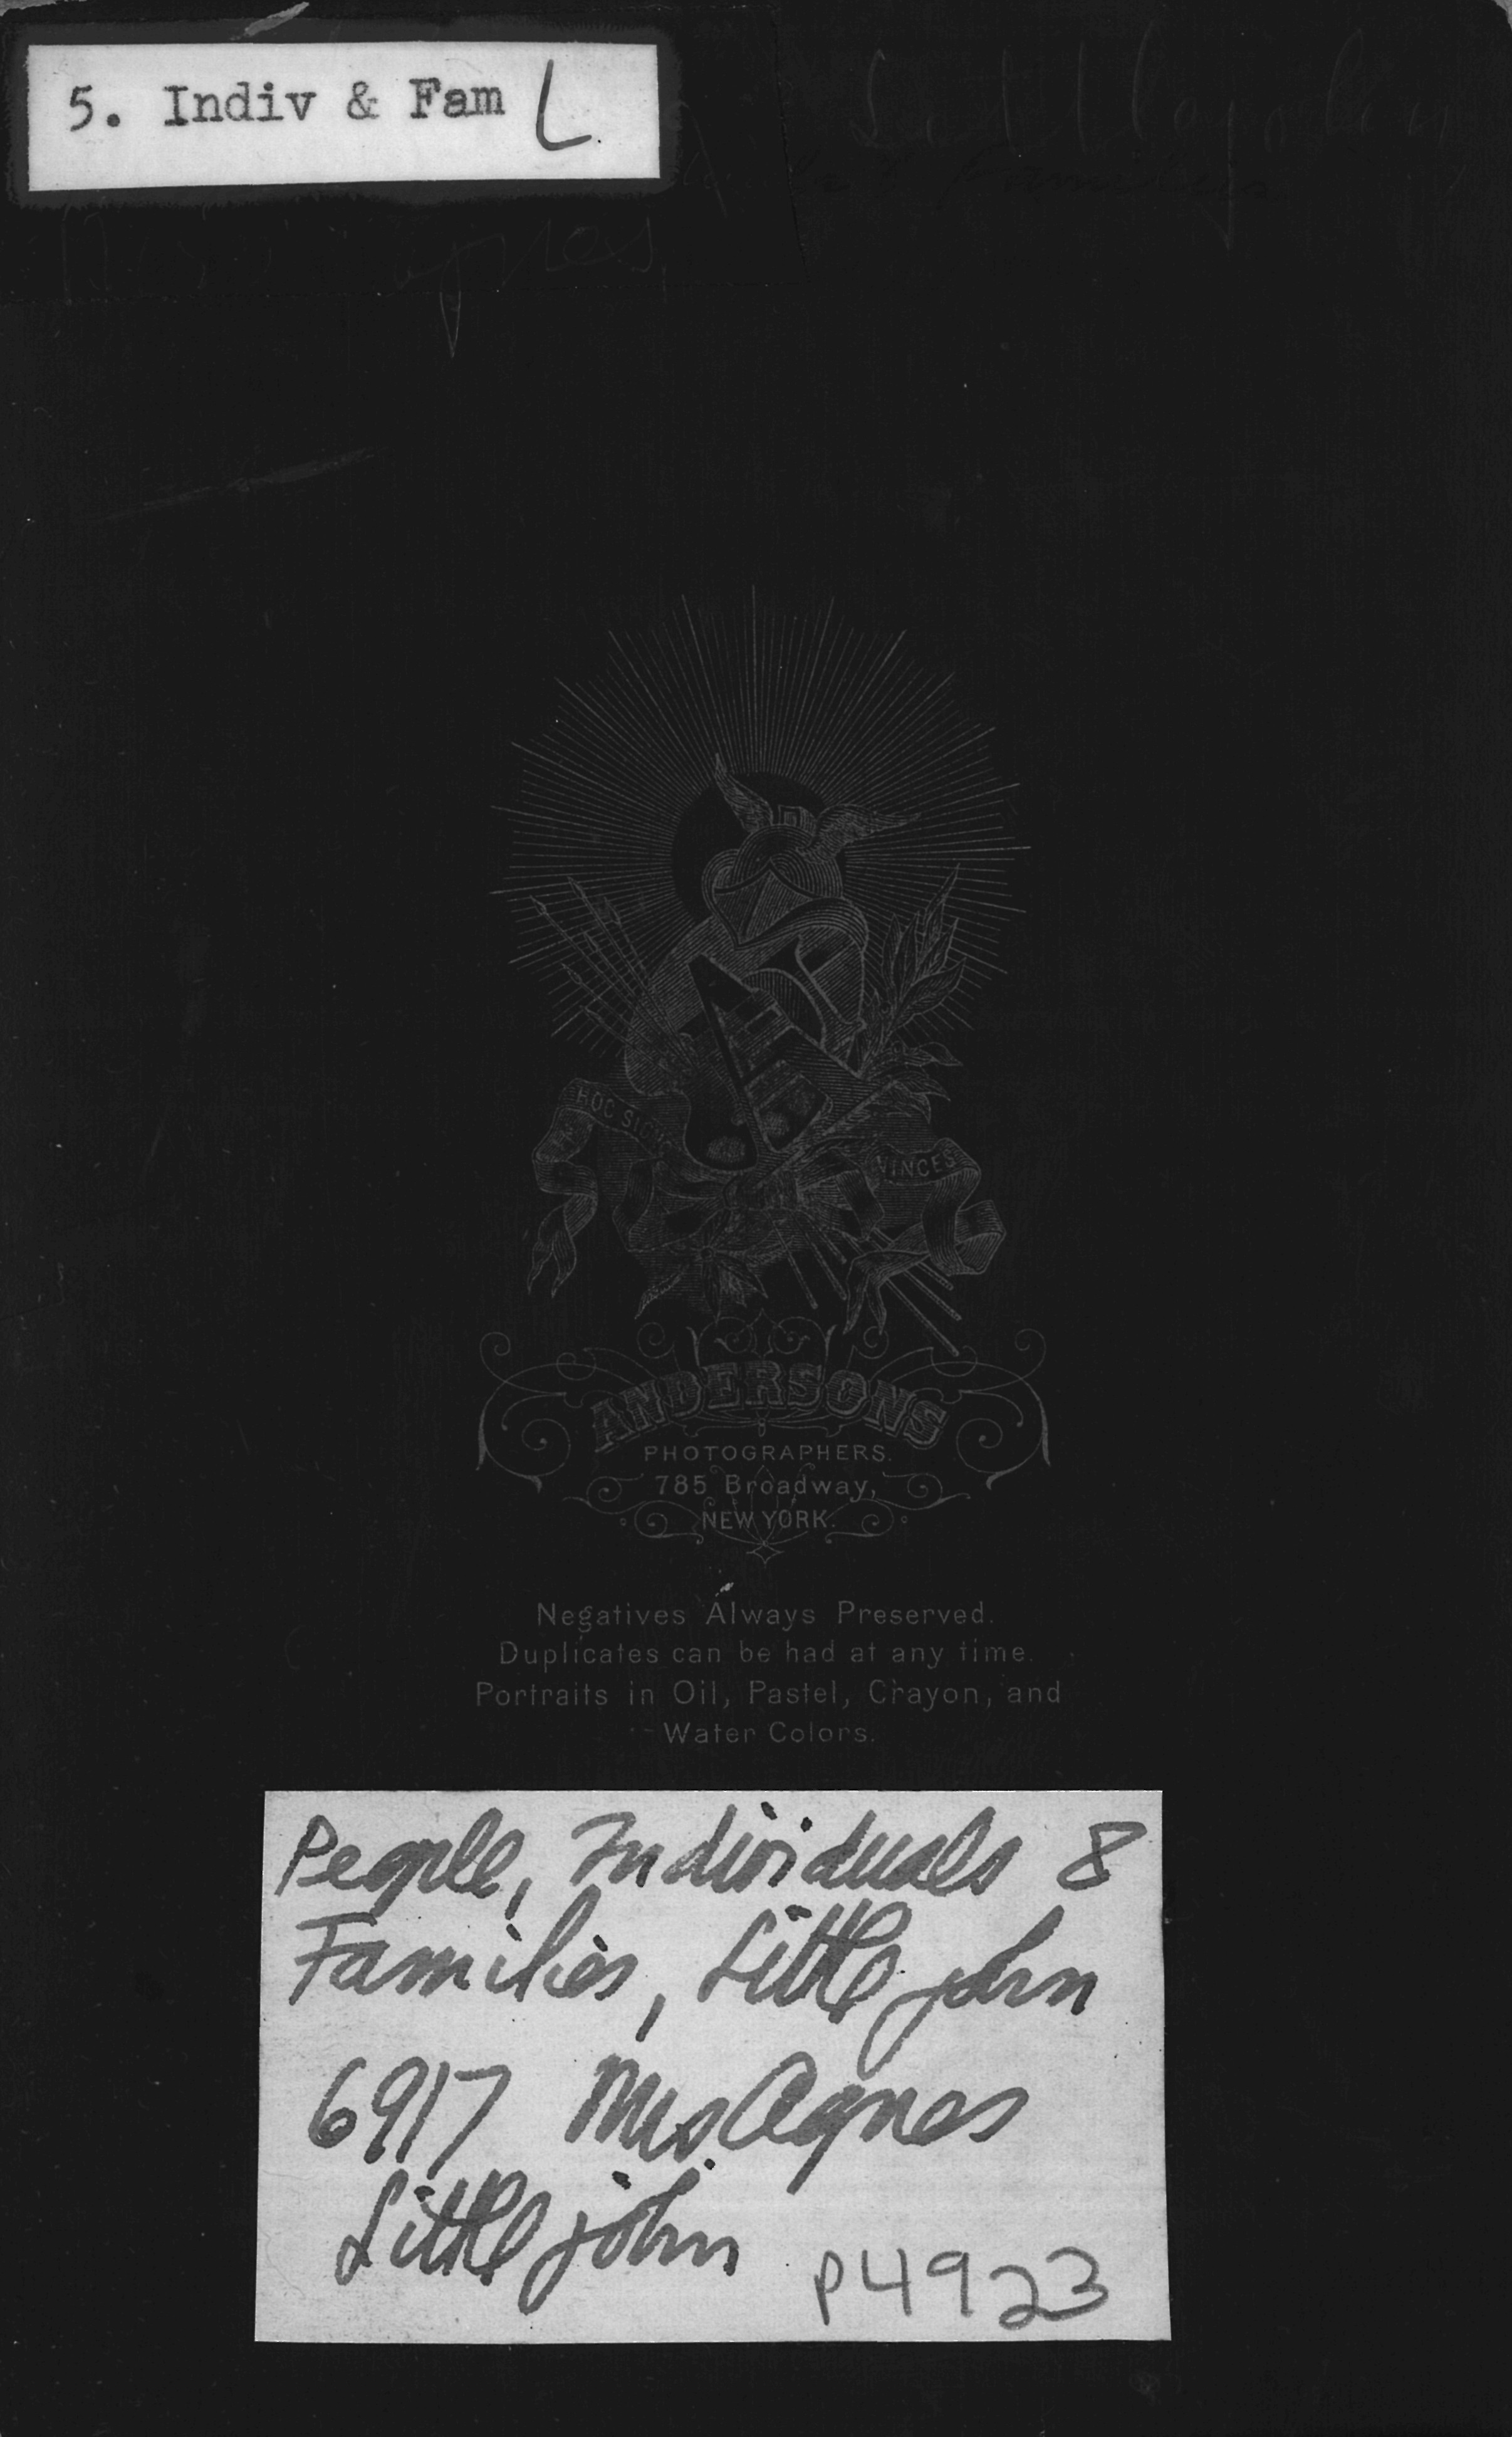 5. Indiv & Fam L
Littlejohn
HOC SIGNO
VINCES
ANDERSONS
PHOTOGRAPHERS.
785 Broadway,
NEW YORK.
Negatives Always Preserved.
Duplicates can be had at any time.
Portraits in Oil, Pastel, Crayon, and
Water Colors.
People, Individuals &
Families, Littlejohn
6917 Mrs. Agnes
Littlejohn
P4923